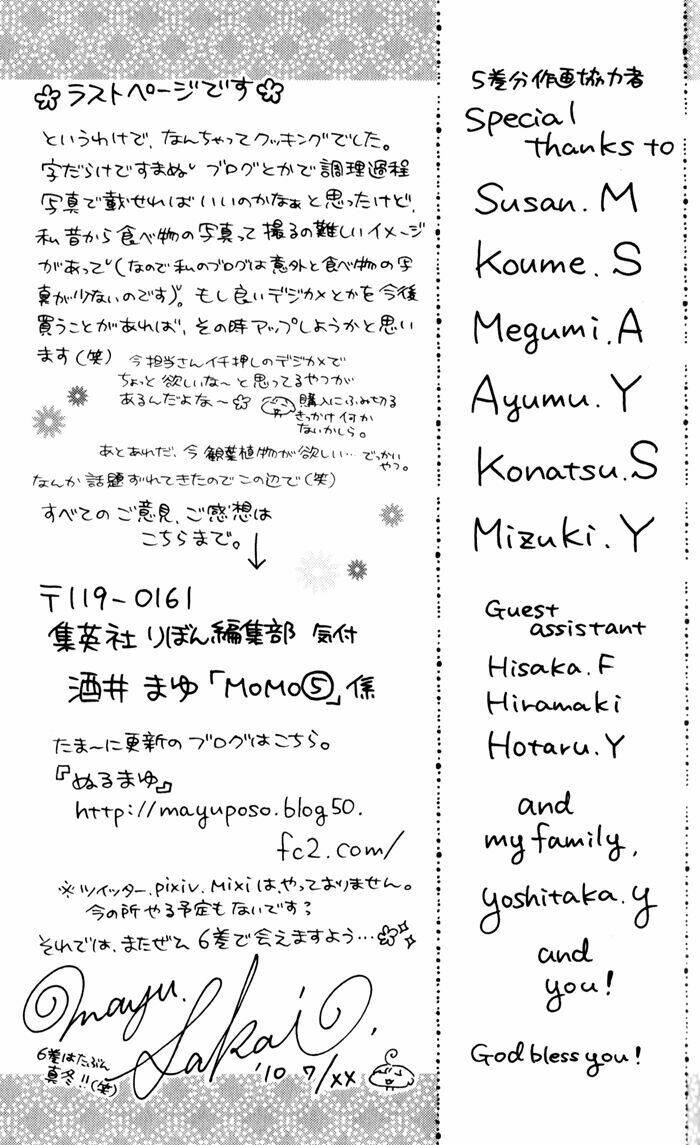 ラストページです
というわけで、なんちゃってクッキングでした。
字だらけですまぬ ブログとかで調理過程
写真で載せればいいのかなぁと思ったけど、
私昔から食べ物の写真って撮るの難しいイメージ
があって(なので私のブログは意外と食べ物の写
真が少ないのです)。もし良いデジカメとかを今後
買うことがあれば、その時アップしようかと思い
ます(笑)
今担当さんイチ押しのデジカメで
ちょっと欲しいな〜と思ってるやつが
あるんだよな〜
購入にふみ切る
きっかけ何か
ないかしら。
あとあれだ、今観葉植物が欲しい… でっかい
やつ。
なんか話題ずれてきたのでこの辺で(笑)
すべてのご意見、ご感想は
こちらまで。↓
〒119-0161
集英社 りぼん編集部 気付
酒井 まゆ「MOMO⑤」係
たま〜に更新のブログはこちら。
『ぬるまゆ』
http://mayuposo.blog50.
fc2.com/
※ツイッター、pixiv、Mixiは、やっておりません。
今の所やる予定もないです?
それでは、またぜひ 6巻で会えますよう…
mayu.
Sakai.
'10 7/XX
6巻はたぶん
真冬!!(笑)
5巻分作画協力者
Special
thanks to
Susan. M
Koume. S
Megumi. A
Ayumu. Y
Konatsu. S
Mizuki. Y
Guest
assistant
Hisaka. F
Hiramaki
Hotaru. Y
and
my family,
yoshitaka. y
and
you!
God bless you!